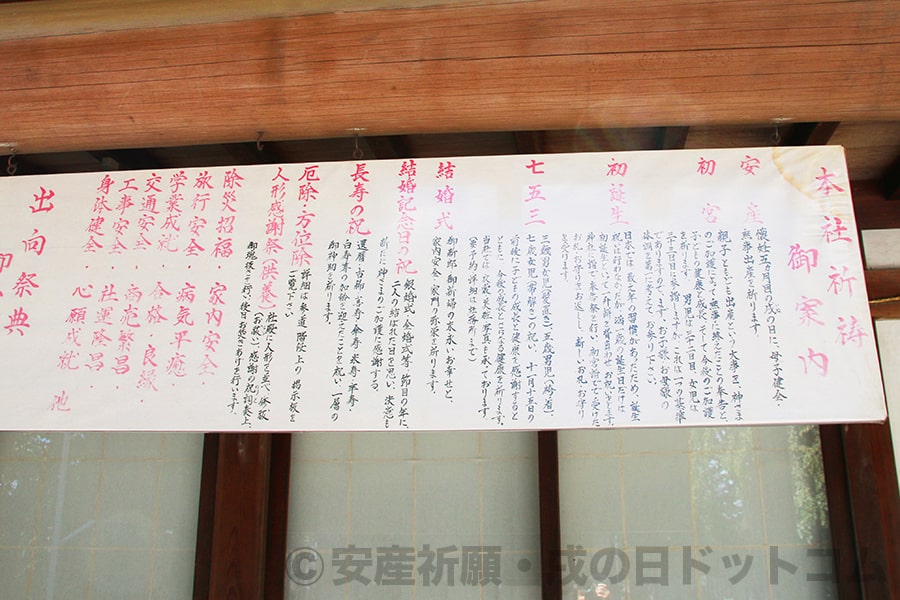 本社祈祷
御案内
安産
懐妊五ヵ月目の戌の日に、母子健全・
無事出産を祈ります。
初宮
親子ともども出産という大事を、神さま
のご加護によって無事に終えたことの奉告と、
子どもの健康と成長、そして今後のご加護
を祈ります。男児は三十二日目、女児は
三十三日目に参詣しますが、これは一つの基準
体調を第一に考えて、お参り下さい。
初誕生
日本では数え年の習慣があったため、誕生
神社に詣で奉告祭を行い、初宮詣で受けた
お札お守をお返しし、新しいお札・お守り
を受けます。
七五三
三歳男女児(髪置き)、五歳男児(袴着)・
七歳女児(帯解き)の祝い。十一月十五日の
前後に子どもの成長と健康を感謝すると
ともに、今後の益々ご加護を祈ります。
結婚式
御新郎・御新婦の末永いお幸せと、
家内安全・家門の弥栄を祈ります。
当社では、衣裳・美粧・写真も承っております。
(要予約 詳細は社務所まで)
結婚記念日の祝
銀婚式・金婚式等、節目の年に、
二人の結ばれた日を祝い、決意も
新たに、神さまのご加護に感謝する。
長寿の祝
還暦・古稀・喜寿・傘寿・米寿・卒寿・
白寿等の加齢を迎えたことを祝い、一層の
御神助を祈ります。
厄除・方位除
詳細は参道階段上の掲示板を
ご覧下さい
人形感謝祭(供養)
社殿に人形を並べ、修祓
(お祓い)、感謝の祝詞奏上、
御魂抜きを行い、後日お焚きあげを行います。
除災招福・家内安全・
旅行安全・病気平癒・
学業成就・合格・良縁・
交通安全・商売繁昌・
工事安全・社運隆昌・
身体健全・心願成就 他
出向祭典
©安産祈願・戌の日ドットコム